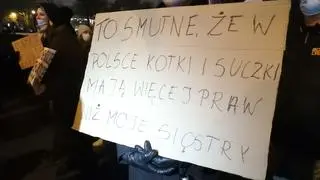 TO SMUTNE, ŻE W
POLSCE KOTKI I SUCZKI
MAJĄ WIĘCEJ PRAW
NIŻ MOJE SIOSTRY